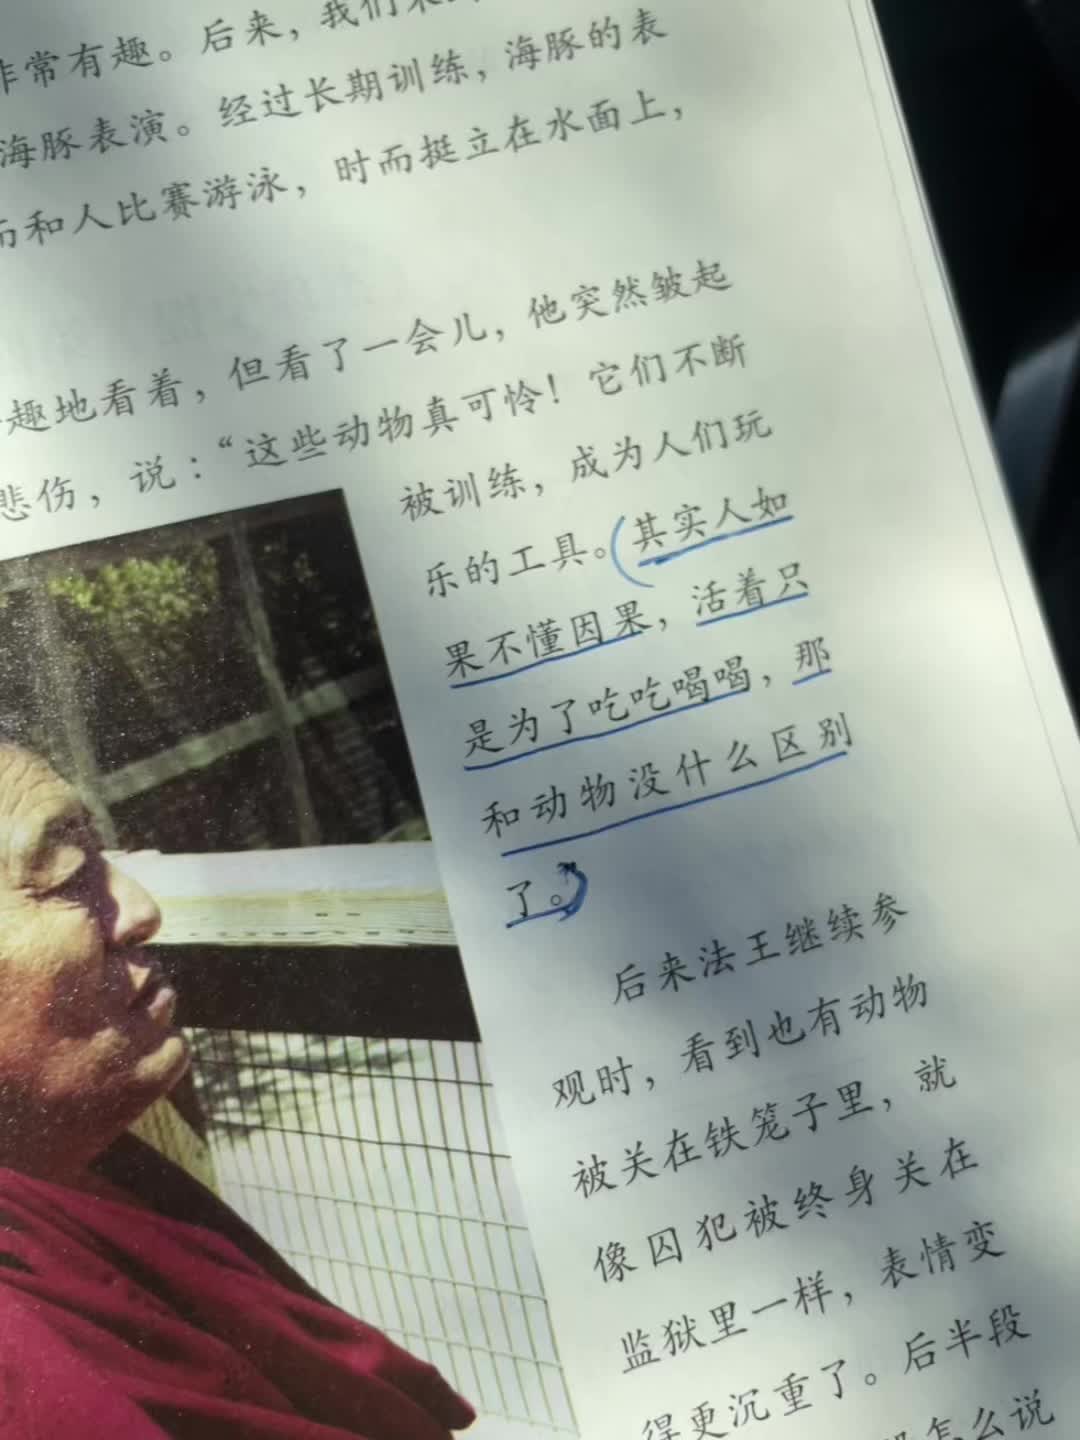 非常有趣。后来，我们
海豚表演。经过长期训练，海豚的表
而和人比赛游泳，时而挺立在水面上，
趣地看着，但看了一会儿，他突然皱起
悲伤，说：“这些动物真可怜！它们不断
被训练，成为人们玩
乐的工具。其实人如
果不懂因果，活着只
是为了吃吃喝喝，那
和动物没什么区别
了。”
后来法王继续参
观时，看到也有动物
被关在铁笼子里，就
像囚犯被终身关在
监狱里一样，表情变
得更沉重了。后半段
怎么说